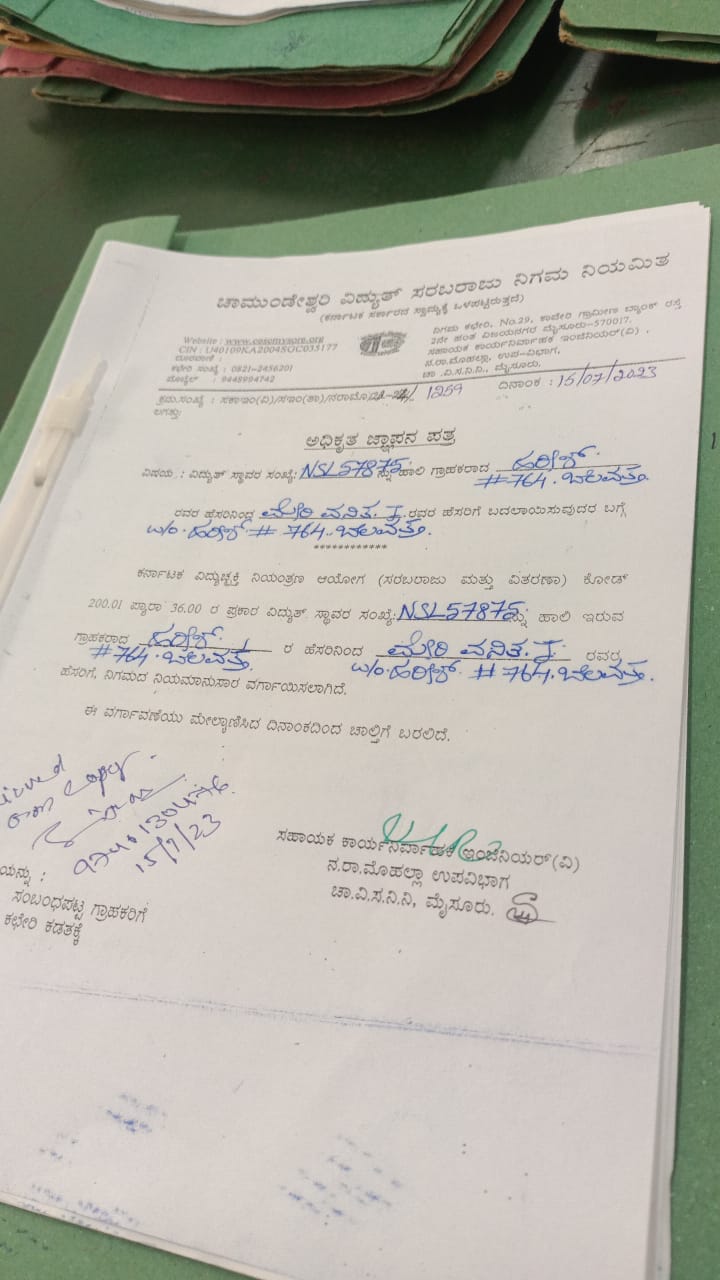 ಚಾಮುಂಡೇಶ್ವರಿ ವಿದ್ಯುತ್ ಸರಬರಾಜು ನಿಗಮ ನಿಯಮಿತ
(ಕರ್ನಾಟಕ ಸರ್ಕಾರದ ಸ್ವಾಮ್ಯಕ್ಕೆ ಒಳಪಟ್ಟಿರುತ್ತದೆ)
Website : www.cescmysore.org
CIN : U40109KA2004SOC035177
ದೂರವಾಣಿ :
ಕಛೇರಿ ಸಂಖ್ಯೆ : 0821-2456201
ಮೊಬೈಲ್ : 9448994742
ನಿಗಮ ಕಛೇರಿ, No.29, ಕಾವೇರಿ ಗ್ರಾಮೀಣ ಬ್ಯಾಂಕ್ ರಸ್ತೆ
2ನೇ ಹಂತ ವಿಜಯನಗರ ಮೈಸೂರು-570017.
ಸಹಾಯಕ ಕಾರ್ಯನಿರ್ವಾಹಕ ಇಂಜಿನಿಯರ್(ವಿ) ,
ನ.ರಾ.ಮೊಹಲ್ಲಾ, ಉಪ-ವಿಭಾಗ,
ಚಾ.ವಿ.ಸ.ನಿ.ನಿ., ಮೈಸೂರು.
ಕ್ರಮ.ಸಂಖ್ಯೆ : ಸಕಾಇಂ(ವಿ)/ಸಇಂ(ತಾ)/ನರಾಮೊ/ 1259 ದಿನಾಂಕ : 15/07/2023
ಲಗತ್ತು:
ಅಧಿಕೃತ ಜ್ಞಾಪನ ಪತ್ರ
ವಿಷಯ : ವಿದ್ಯುತ್ ಸ್ಥಾವರ ಸಂಖ್ಯೆ: NSL57875 ನ್ನು ಹಾಲಿ ಗ್ರಾಹಕರಾದ ಹರೀಶ್
#764. ಬೆಲವತ್ತ.
ರವರ ಹೆಸರಿನಿಂದ ಮೇರಿ ವನಿತ. J. ರವರ ಹೆಸರಿಗೆ ಬದಲಾಯಿಸುವುದರ ಬಗ್ಗೆ
w/o. ಹರೀಶ್ # 764. ಬೆಲವತ್ತ.
************
ಕರ್ನಾಟಕ ವಿದ್ಯುಚ್ಛಕ್ತಿ ನಿಯಂತ್ರಣ ಆಯೋಗ (ಸರಬರಾಜು ಮತ್ತು ವಿತರಣಾ) ಕೋಡ್
200.01 ಪ್ಯಾರಾ 36.00 ರ ಪ್ರಕಾರ ವಿದ್ಯುತ್ ಸ್ಥಾವರ ಸಂಖ್ಯೆ: NSL57875 ನ್ನು ಹಾಲಿ ಇರುವ
ಗ್ರಾಹಕರಾದ ಹರೀಶ್. ರ ಹೆಸರಿನಿಂದ ಮೇರಿ ವನಿತ. J. ರವರ
#764. ಬೆಲವತ್ತ. w/o. ಹರೀಶ್. # 764. ಬೆಲವತ್ತ.
ಹೆಸರಿಗೆ, ನಿಗಮದ ನಿಯಮಾನುಸಾರ ವರ್ಗಾಯಿಸಲಾಗಿದೆ.
ಈ ವರ್ಗಾವಣೆಯು ಮೇಲ್ಕಾಣಿಸಿದ ದಿನಾಂಕದಿಂದ ಚಾಲ್ತಿಗೆ ಬರಲಿದೆ.
copy
15/7/23
ಸಹಾಯಕ ಕಾರ್ಯನಿರ್ವಾಹಕ ಇಂಜಿನಿಯರ್(ವಿ)
ನ.ರಾ.ಮೊಹಲ್ಲಾ ಉಪವಿಭಾಗ
ಚಾ.ವಿ.ಸ.ನಿ.ನಿ, ಮೈಸೂರು.
ಯನ್ನು :
ಸಂಬಂಧಪಟ್ಟ ಗ್ರಾಹಕರಿಗೆ
ಕಛೇರಿ ಕಡತಕ್ಕೆ